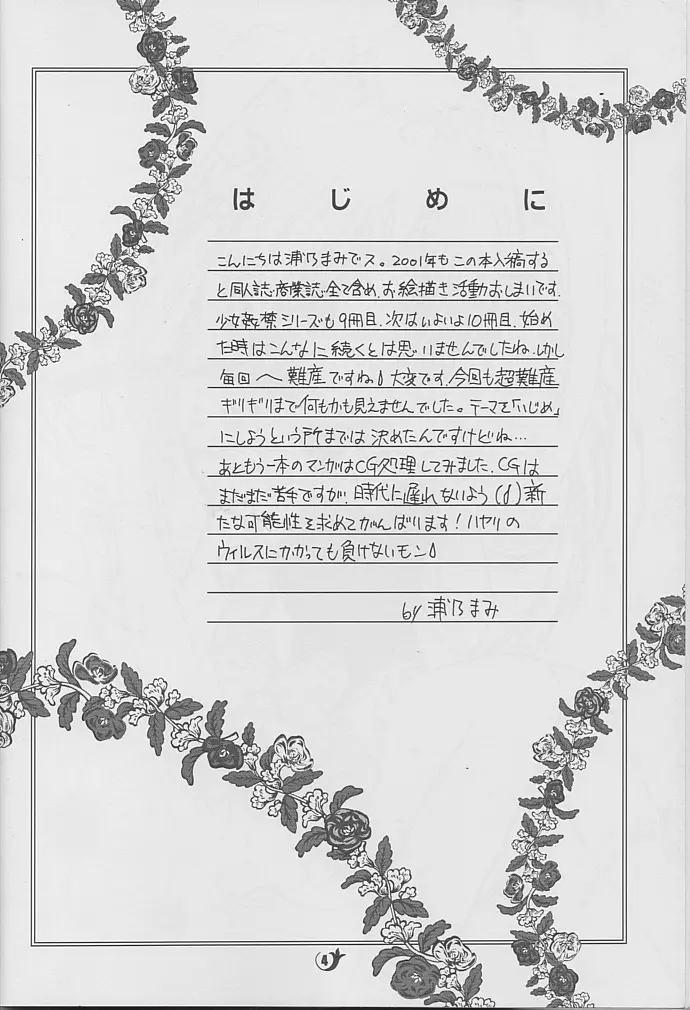 はじめに
こんにちは浦乃まみでス。2001年もこの本入稿する
と同人誌・商業誌、全て含め、お絵描き活動おしまいです。
少女姦禁シリーズも9冊目、次はいよいよ10冊目、始め
た時はこんなに続くとは思いませんでしたね、しかし
毎回へ難産ですね 大変です、今回も超難産
ギリギリまで何もかも見えませんでした。テーマを「いじめ」
にしようという所までは決めたんですけどね…
あともう一本のマンガはCG処理してみました、CGは
まだまだ苦手ですが、時代に遅れないよう 新
たな可能性を求めてがんばります!ハヤリの
ウィルスにかかっても負けないモン
by 浦乃まみ
4